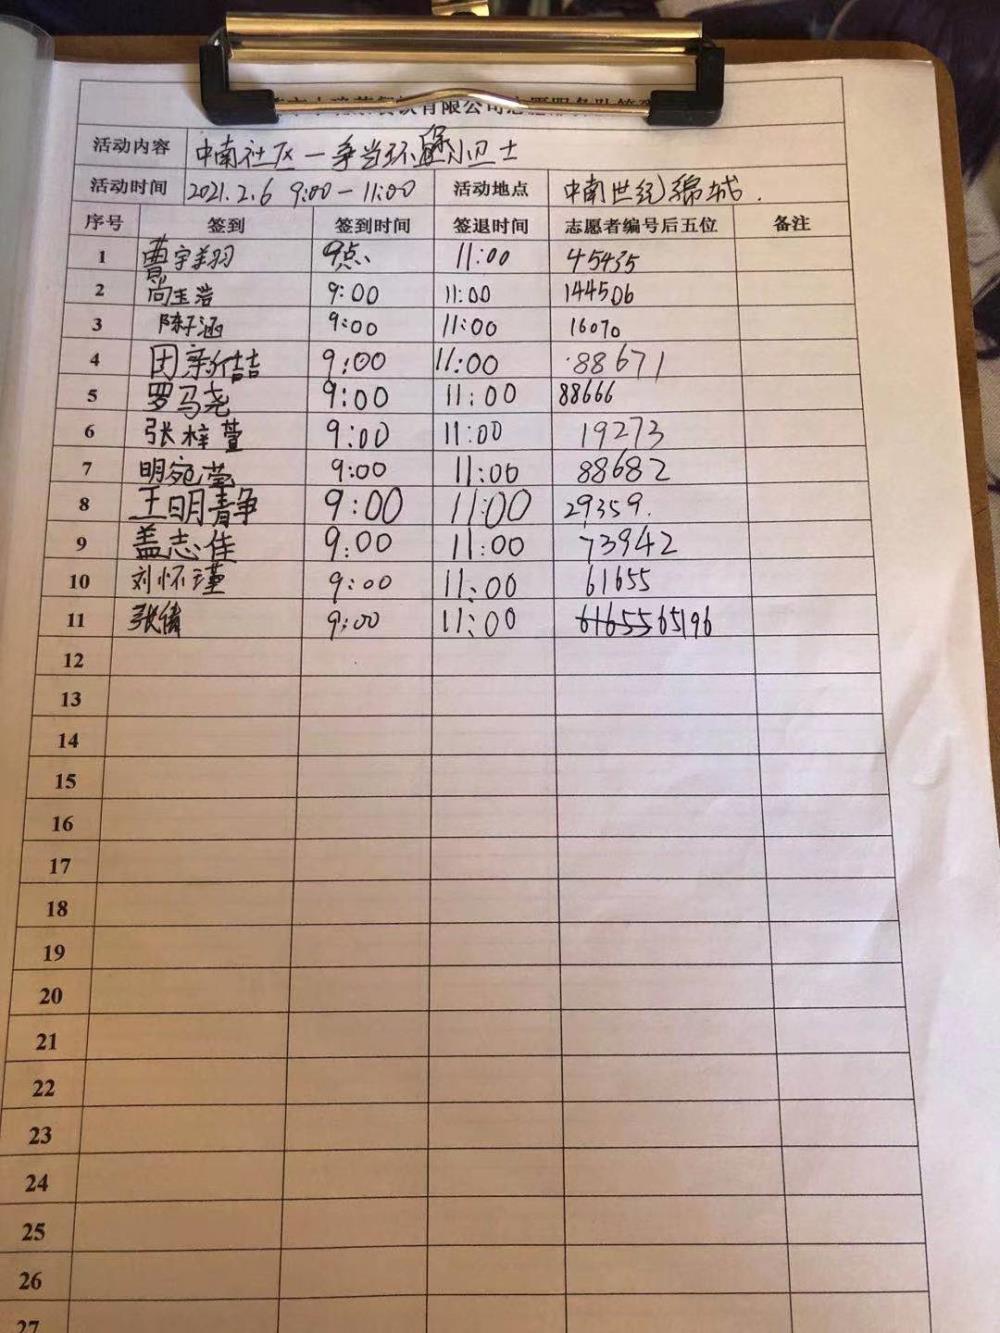 有限公司
活动内容 中南社区一争当环保小卫士
活动时间 2021.2.6 9:00-11:00 活动地点 中南世纪锦城.
序号 签到 签到时间 签退时间 志愿者编号后五位 备注
1 曹宇羽 9点 11:00 45435
2 尚玉浩 9:00 11:00 144506
3 陈子涵 9:00 11:00 16070
4 9:00 11:00 88671
5 罗马尧 9:00 11:00 88666
6 张梓萱 9:00 11:00 19273
7 明宛莹 9:00 11:00 88682
8 王明静 9:00 11:00 29359.
9 盖志佳 9:00 11:00 73942
10 刘怀瑾 9:00 11:00 61655
11 张倩 9:00 11:00 6165565196
12
13
14
15
16
17
18
19
20
21
22
23
24
25
26
27